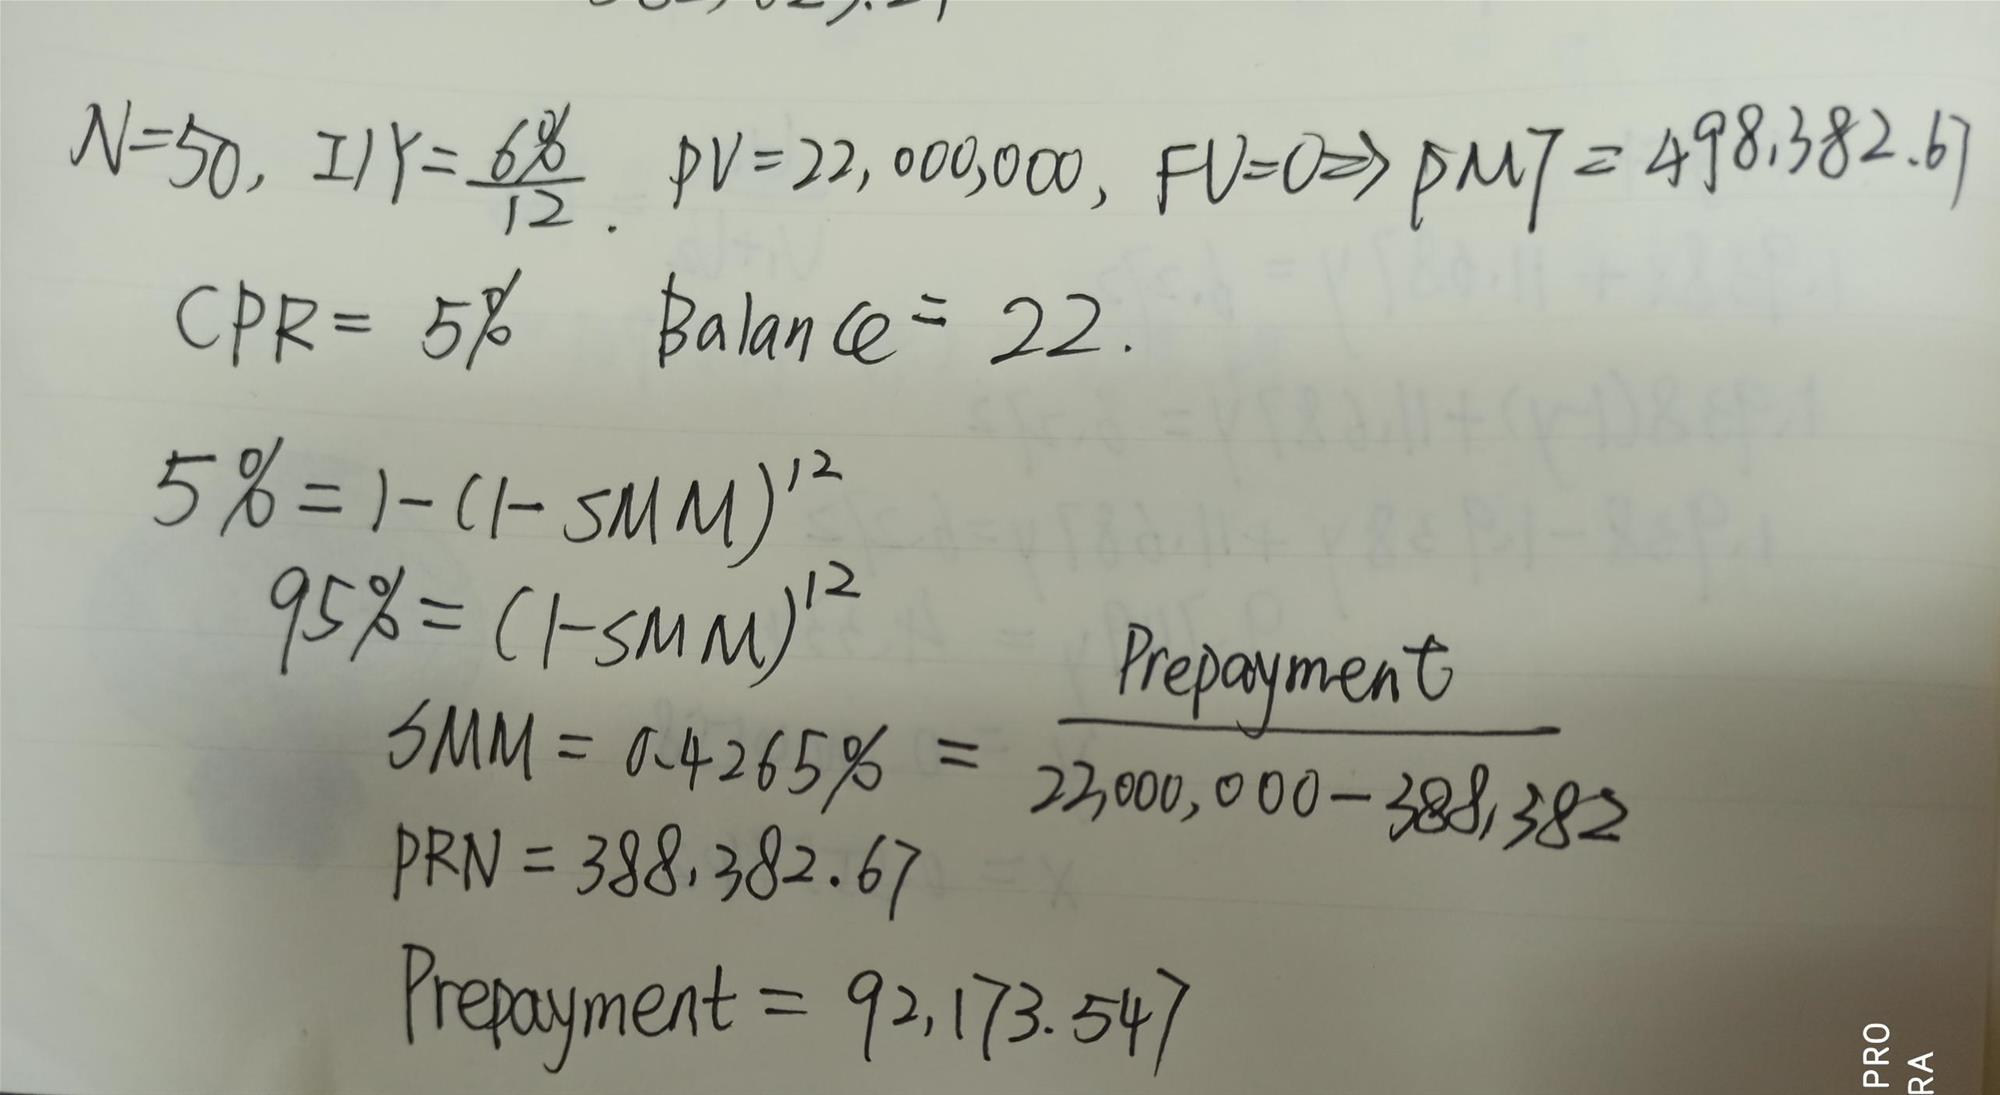 N=50, I/Y= 6%/12. PV=22,000,000, FV=0⇒ PMT=498,382.67
CPR= 5% Balance= 22.
5%=1-(1-SMM)^12
95%=(1-SMM)^12
SMM=0.4265% = Prepayment/22,000,000-388,382
PRN=388,382.67
Prepayment=92,173.547
PRO
RA